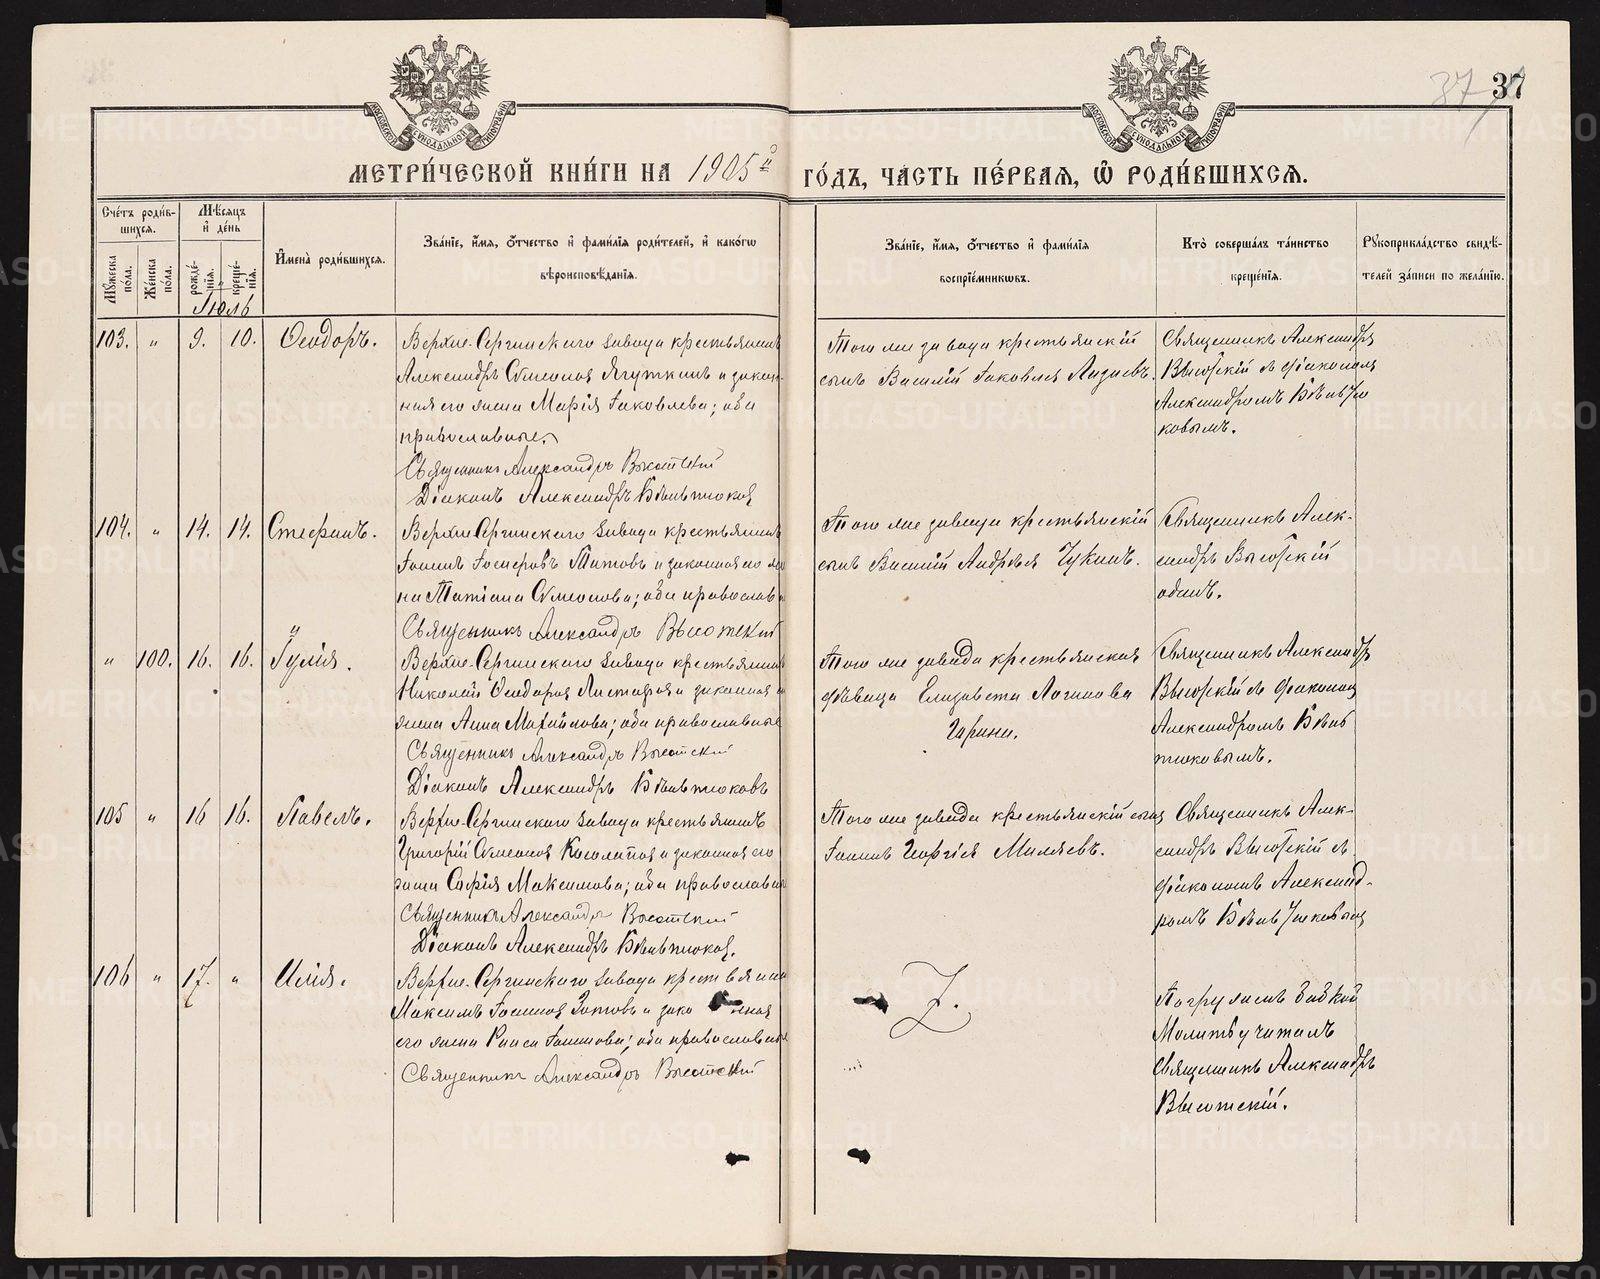 37 37
МЕТРИ́ЧЕСКОЙ КНИ́ГИ НА 1905й ГО́ДЪ, ЧА́СТЬ ПЕ́РВАѦ, Ѡ҆ РОДИ́ВШИХСѦ.
Сче́тъ роди́в-
шихсѧ.
Мꙋ́жеска по́ла.
Же́нска по́ла.
Мѣ́сѧцъ
и҆ де́нь
рожде́-
нїѧ.
креще́-
нїѧ.
Іюль
И҆мена̀ роди́вшихсѧ.
Зва́нїе, и҆́мѧ, ѻ҆́тчество и҆ фами́лїѧ роди́телей, и҆ како́гѡ
вѣроисповѣ́данїѧ.
Зва́нїе, и҆́мѧ, ѻ҆́тчество и҆ фами́лїѧ
воспрїе́мникѡвъ.
Кто̀ соверша́лъ та́инство
креще́нїѧ.
Рꙋкоприкла́дство свидѣ́-
телей за́писи по жела́нїю.
103. " 9. 10. Ѳеодоръ.
Верхне-Сергинскаго завода крестьянинъ
Александръ Симеоновъ Ягуткинъ и закон-
ная его жена Марія Іаковлева; оба
православные.
Священникъ Александръ Высотскій
Діаконъ Александръ Бѣлътюковъ
Того же завода крестьянскій
сынъ Василій Іаковлевъ
Священникъ Александръ
Высотскій съ діакономъ
Александромъ Бѣлътю
ковымъ.
104. " 14. 14. Стефанъ.
Верхне-Сергинскаго завода крестьянинъ
Іоаннъ Титовъ и законная его же
на Татіана Симеонова; оба православн
Священникъ Александръ Высотскій
Того же завода крестьянскій
сынъ Василій Андреевъ Чукинъ.
Священникъ Алек-
сандръ Высотскій
одинъ.
" 100. 16. 16. Іулія.
Верхне-Сергинскаго завода крестьянинъ
Николай Ѳеодоровъ и законная
жена Анна Михайлова; оба православные
Священникъ Александръ Высотскій
Діаконъ Александръ Бѣлътюковъ
Того же завода крестьянская
дѣвица Елизавета Логинова
Священникъ Александръ
Высотскій съ діакономъ
Александромъ Бѣлъ
тюковымъ.
105 " 16 16. Павелъ.
Верхне-Сергинскаго завода крестьянинъ
Григорій Симеоновъ Косолаповъ и законная его
жена Софія Максимова; оба православн
Священникъ Александръ Высотскій
Діаконъ Александръ Бѣлътюковъ.
Того же завода крестьянскій сынъ
Іоаннъ Георгіевъ Миляевъ.
Священникъ Алек-
сандръ Высотскій съ
діакономъ Александ-
ромъ Бѣлътюковымъ
106 " 17. " Илія.
Верхне-Сергинскаго завода крестьянинъ
Максимъ Іоанновъ Зотовъ и зако нная
его жена Раиса Іоаннова; оба православн
Священникъ Александръ Высотскій
Погруженъ бабкой
Молитву читалъ
Священникъ Александръ
Высотскій.